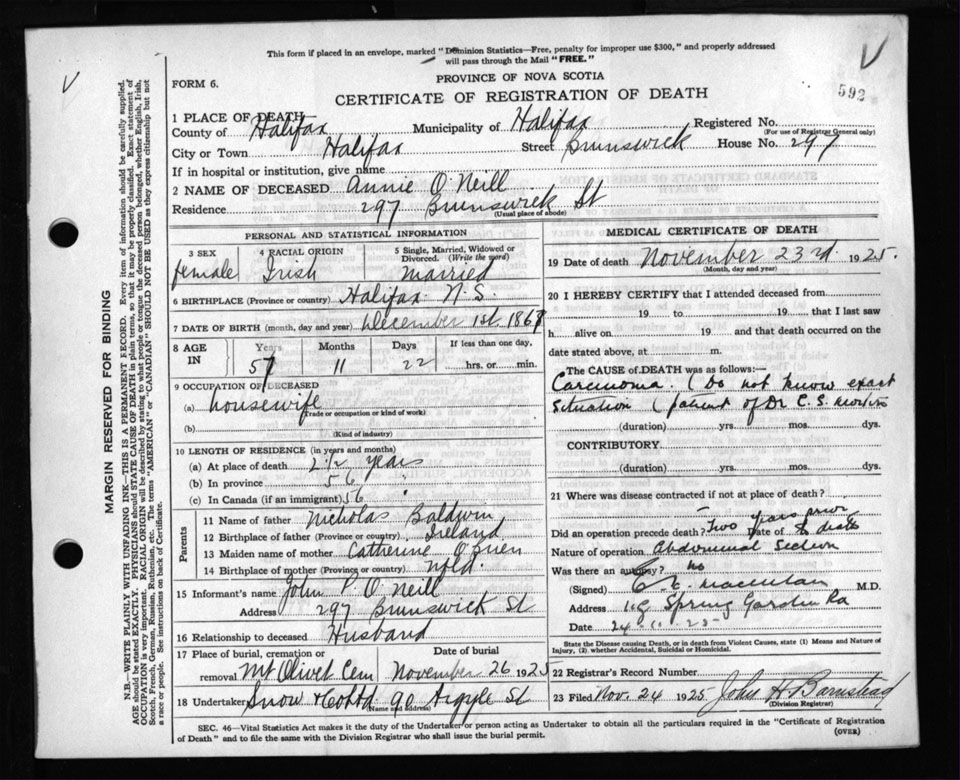 This form if placed in an envelope, marked "Dominion Statistics—Free, penalty for improper use $300," and properly addressed
will pass through the Mail "FREE."
FORM 6.
PROVINCE OF NOVA SCOTIA
592
CERTIFICATE OF REGISTRATION OF DEATH
1 PLACE OF DEATH
County of Halifax Municipality of Halifax Registered No.
(For use of Registrar General only)
City or Town Halifax Street Brunswick House No. 297
If in hospital or institution, give name
2 NAME OF DECEASED Annie O'Neill
Residence 297 Brunswick St
(Usual place of abode)
PERSONAL AND STATISTICAL INFORMATION
3 SEX 4 RACIAL ORIGIN 5 Single, Married, Widowed or
Divorced. (Write the word)
female Irish married
6 BIRTHPLACE (Province or country) Halifax N.S.
7 DATE OF BIRTH (month, day and year) December 1st. 1867
8 AGE IN Years Months Days If less than one day,
57 11 22 hrs. or min.
9 OCCUPATION OF DECEASED
(a) housewife
(Trade or occupation or kind of work)
(b)
(Kind of industry)
10 LENGTH OF RESIDENCE (in years and months)
(a) At place of death 2 1/2 years
(b) In province 56 "
(c) In Canada (if an immigrant) 56 "
Parents
11 Name of father Nicholas Baldwin
12 Birthplace of father (Province or country) Ireland
13 Maiden name of mother Catherine O'Brien
14 Birthplace of mother (Province or country) Nfld.
15 Informant's name John P. O'Neill
Address 297 Brunswick St
16 Relationship to deceased Husband
17 Place of burial, cremation or Date of burial
removal Mt Olivet Cem November 26 1925
18 Undertaker Snow & Co Ltd 90 Argyle St
(Name and address)
MEDICAL CERTIFICATE OF DEATH
19 Date of death November 23rd 1925.
(Month, day and year)
20 I HEREBY CERTIFY that I attended deceased from
19 to 19 that I last saw
h alive on 19 and that death occurred on the
date stated above, at m.
The CAUSE OF DEATH was as follows:
Carcinoma. (Do not know exact
situation (patient of Dr C. S. Morton
(duration) yrs. mos. dys.
CONTRIBUTORY
(duration) yrs. mos. dys.
21 Where was disease contracted if not at place of death?
Did an operation precede death? Two years prior Date of to death
Nature of operation Abdominal Section
Was there an autopsy? no
(Signed) M.D.
Address Spring Garden Rd
Date 24 11 25
State the Disease causing Death, or in death from Violent Causes, state (1) Means and Nature of
Injury, (2) whether Accidental, Suicidal or Homicidal.
22 Registrar's Record Number
23 Filed Nov. 24 1925 John H. Barnstead
(Division Registrar)
SEC. 46—Vital Statistics Act makes it the duty of the Undertaker or person acting as Undertaker to obtain all the particulars required in the "Certificate of Registration
of Death" and to file the same with the Division Registrar who shall issue the burial permit.
(OVER)
MARGIN RESERVED FOR BINDING
N.B.—WRITE PLAINLY WITH UNFADING INK—THIS IS A PERMANENT RECORD. Every item of information should be carefully supplied.
AGE should be stated EXACTLY. PHYSICIANS should STATE CAUSE OF DEATH in plain terms, so that it may be properly classified. Exact statement of
OCCUPATION is very important. RACIAL ORIGIN will be described by stating to what people or tongue the deceased person belonged, whether English, Irish,
Scotch, French, German, Russian, Ruthenian, etc. The terms "AMERICAN" or "CANADIAN" SHOULD NOT BE USED as they express citizenship but not
a race or people. See instructions on back of Certificate.